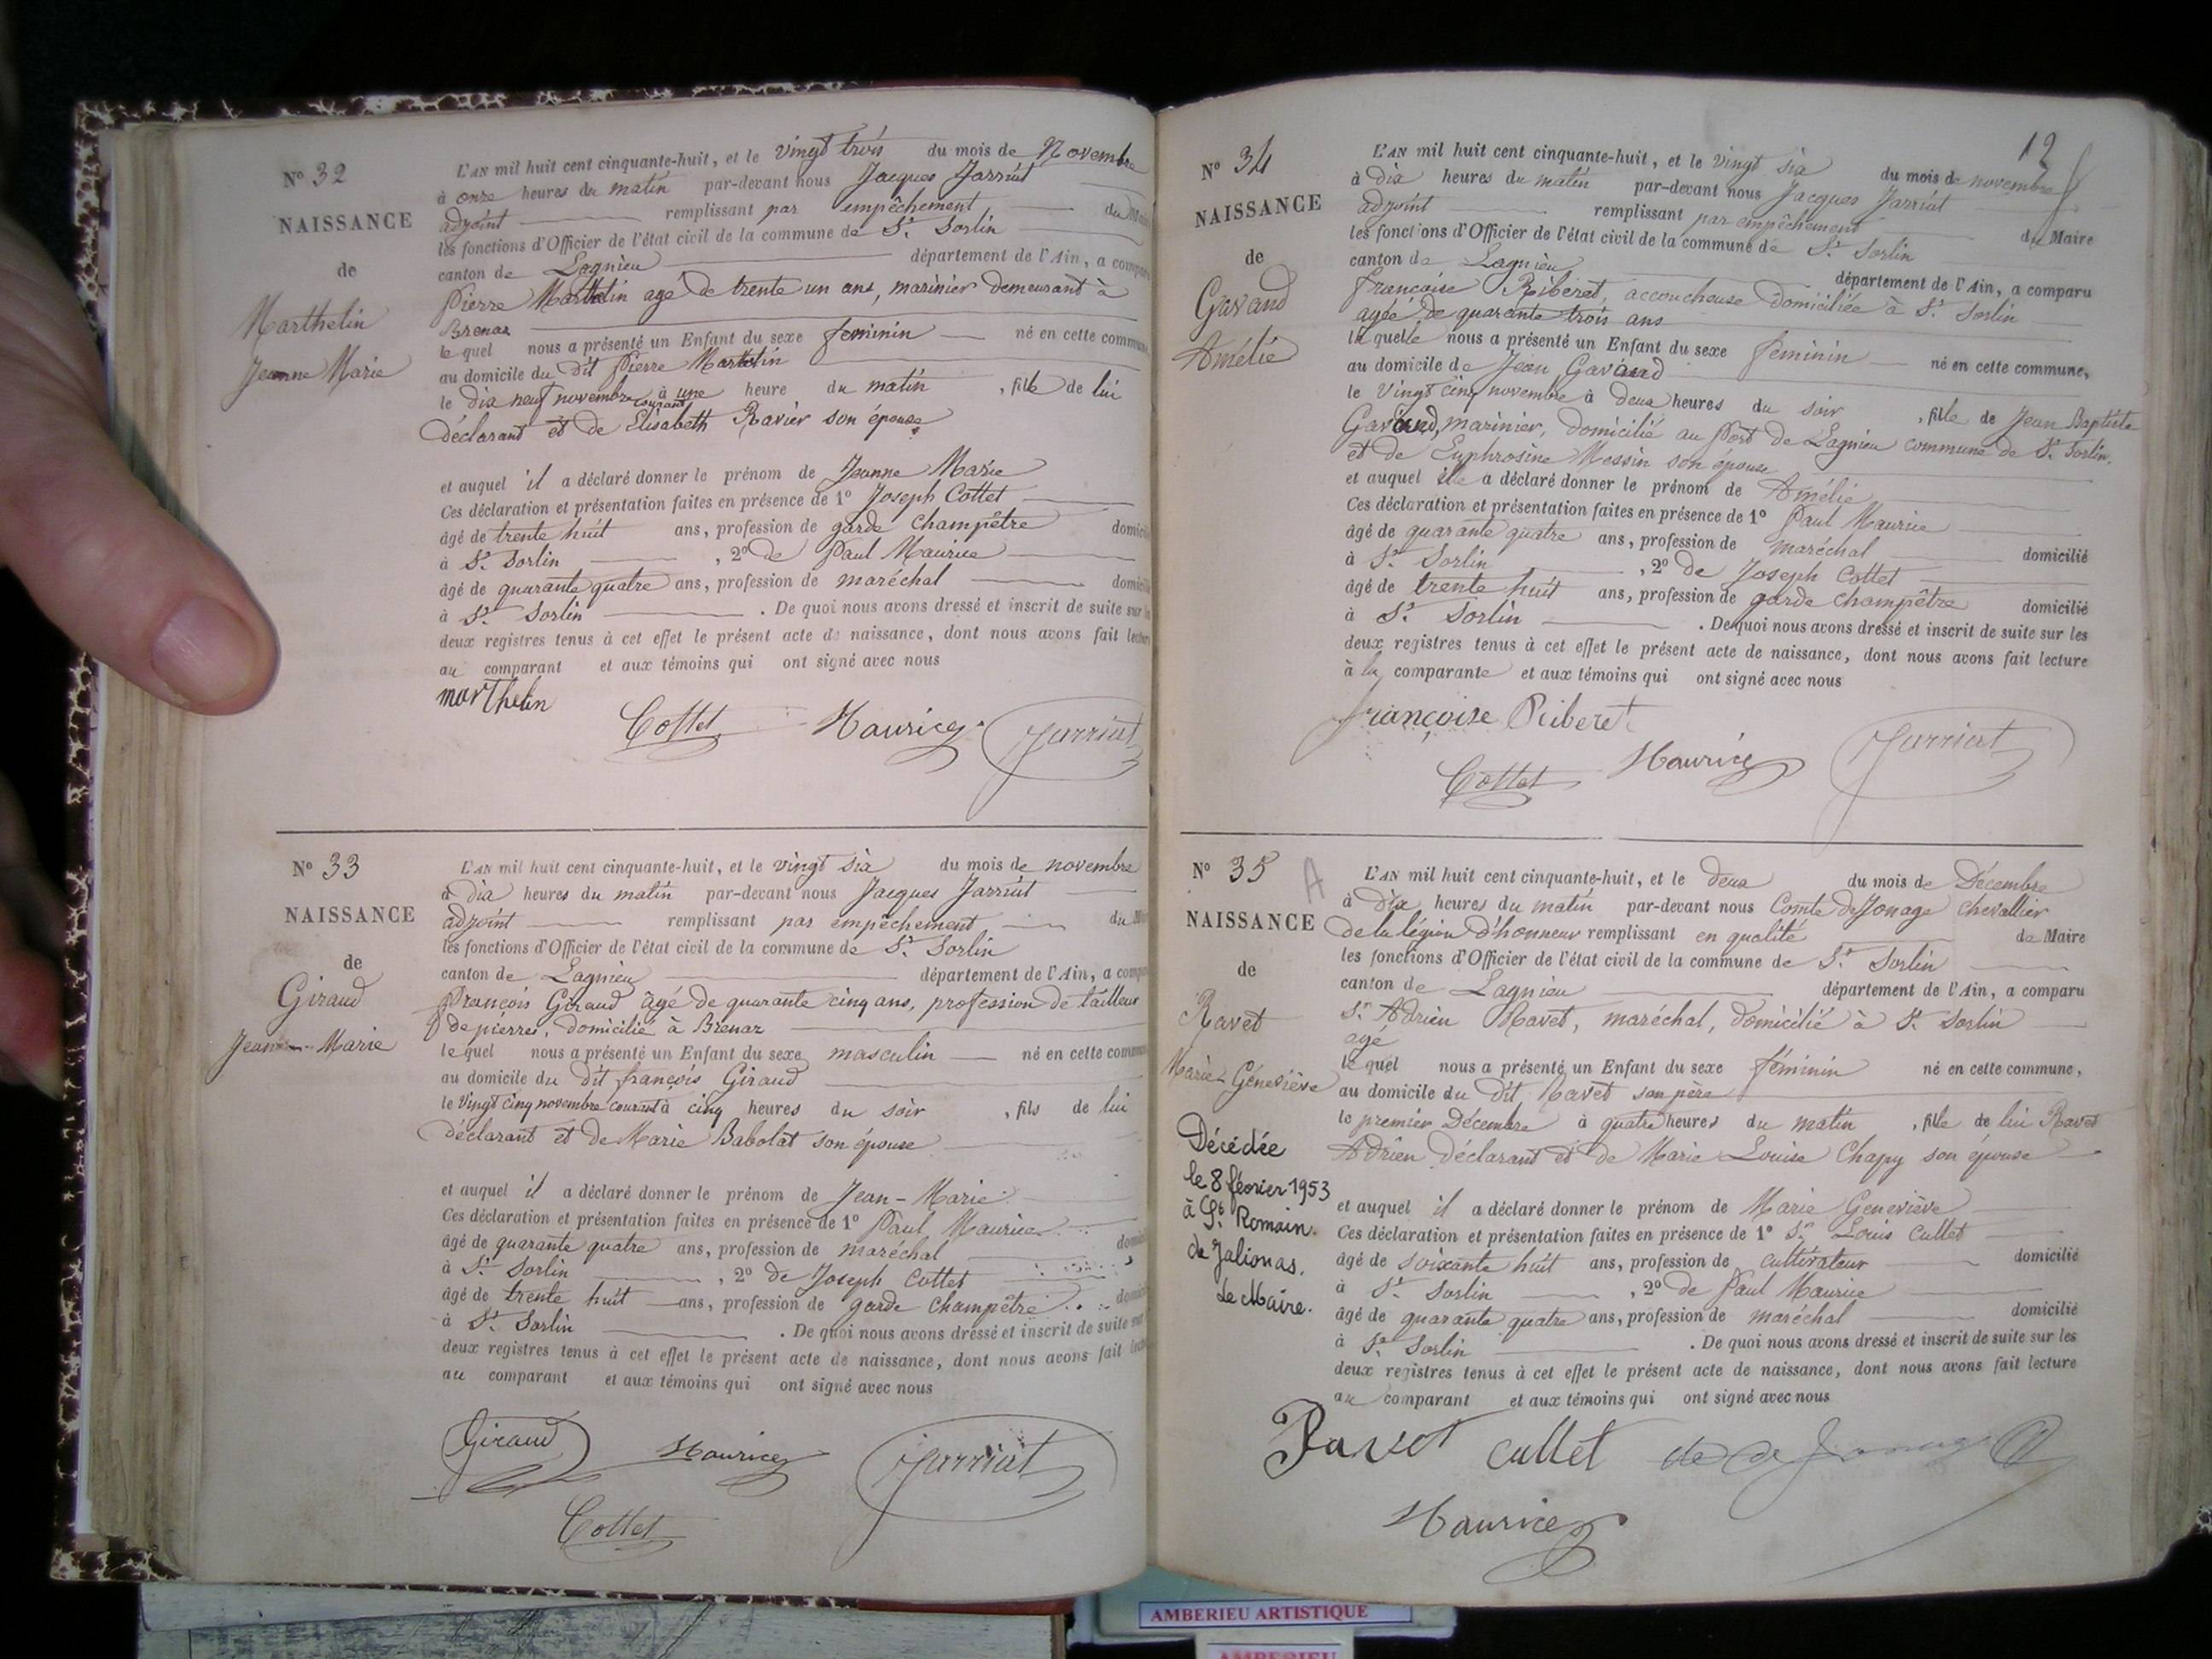 N° 32
NAISSANCE
de
Marthelin
Jeanne Marie
L'AN mil huit cent cinquante-huit, et le vingt trois du mois de Novembre
à onze heures du matin par-devant nous Jacques Jarriat
adjoint remplissant par empêchement du
les fonctions d'Officier de l'état civil de la commune de St. Sorlin
canton de Lagnieu département de l'Ain, a
Pierre Marthelin agé de trente un ans, marinier demeurant à
Brenaz
le quel nous a présenté un Enfant du sexe feminin né en cette
au domicile du dit Pierre Marthelin
le dix neuf novembre courant à une heure du matin , fille de lui
déclarant et de Elisabeth Ravier son épouse
et auquel il a déclaré donner le prénom de Jeanne Marie
Ces déclaration et présentation faites en présence de 1° Joseph Cottet
âgé de trente huit ans, profession de garde champêtre
à St. Sorlin , 2° de Paul Maurice
âgé de quarante quatre ans, profession de maréchal
à St. Sorlin . De quoi nous avons dressé et inscrit de suite sur
deux registres tenus à cet effet le présent acte de naissance, dont nous avons fait
au comparant et aux témoins qui ont signé avec nous
marthelin
Cottet Maurice Jarriat
N° 33
NAISSANCE
de
Giraud
Jean-Marie
L'AN mil huit cent cinquante-huit, et le vingt six du mois de novembre
à dix heures du matin par-devant nous Jacques Jarriat
adjoint remplissant par empêchement du
les fonctions d'Officier de l'état civil de la commune de St. Sorlin
canton de Lagnieu département de l'Ain, a
François Giraud âgé de quarante cinq ans, profession de tailleur
de pierres, domicilié à Brenaz
lequel nous a présenté un Enfant du sexe masculin né en cette
au domicile du dit françois Giraud
le vingt cinq novembre courant à cinq heures du soir , fils de lui
déclarant et de Marie Babolat son épouse
et auquel il a déclaré donner le prénom de Jean-Marie
Ces déclaration et présentation faites en présence de 1° Paul Maurice
âgé de quarante quatre ans, profession de maréchal
à St. Sorlin , 2° de Joseph Cottet
âgé de trente huit ans, profession de garde champêtre
à St. Sorlin . De quoi nous avons dressé et inscrit de suite
deux registres tenus à cet effet le présent acte de naissance, dont nous avons fait
au comparant et aux témoins qui ont signé avec nous
Giraud Maurice Jarriat
Cottet
12
N° 34
NAISSANCE
de
Gavand
Amélie
L'AN mil huit cent cinquante-huit, et le vingt six du mois de novembre
à dix heures du matin par-devant nous Jacques Jarriat
adjoint remplissant par empêchement du Maire
les fonctions d'Officier de l'état civil de la commune de St. Sorlin
canton de Lagnieu département de l'Ain, a comparu
françoise Riberet, accoucheuse domiciliée à St. Sorlin
agée de quarante trois ans
la quelle nous a présenté un Enfant du sexe feminin né en cette commune,
au domicile de Jean Gavand
le vingt cinq novembre à deux heures du soir , fille de Jean Baptiste
Gavand, marinier, domicilié au Port de Lagnieu commune de St. Sorlin.
et de Euphrosine Messin son épouse
et auquel elle a déclaré donner le prénom de Amélie
Ces déclaration et présentation faites en présence de 1° Paul Maurice
âgé de quarante quatre ans, profession de maréchal domicilié
à St. Sorlin , 2° de Joseph Cottet
âgé de trente huit ans, profession de garde champêtre domicilié
à St. Sorlin . De quoi nous avons dressé et inscrit de suite sur les
deux registres tenus à cet effet le présent acte de naissance, dont nous avons fait lecture
à la comparante et aux témoins qui ont signé avec nous
françoise Riberet
Cottet Maurice Jarriat
N° 35 A
NAISSANCE
de
Ravet
Marie-Géneviève
Décédée
le 8 février 1953
à St Romain.
de Jalionas.
Le Maire.
L'AN mil huit cent cinquante-huit, et le deux du mois de Décembre
à dix heures du matin par-devant nous Comte de Jonage chevallier
de la légion d'honneur remplissant en qualité de Maire
les fonctions d'Officier de l'état civil de la commune de St. Sorlin
canton de Lagnieu département de l'Ain, a comparu
Sr. Adrien Ravet, maréchal, domicilié à St. Sorlin
agé
le quel nous a présenté un Enfant du sexe féminin né en cette commune,
au domicile du dit Ravet son père
le premier Décembre à quatre heures du matin , fille de lui Ravet
Adrien déclarant et de Marie Louise Chapuy son épouse
et auquel il a déclaré donner le prénom de Marie Geneviève
Ces déclaration et présentation faites en présence de 1° Sr. Louis Cullet
âgé de soixante huit ans, profession de cultivateur domicilié
à St. Sorlin , 2° de Paul Maurice
âgé de quarante quatre ans, profession de maréchal domicilié
à St. Sorlin . De quoi nous avons dressé et inscrit de suite sur les
deux registres tenus à cet effet le présent acte de naissance, dont nous avons fait lecture
au comparant et aux témoins qui ont signé avec nous
Ravet Cullet de Jonage
Maurice
AMBERIEU ARTISTIQUE
AMBERIEU